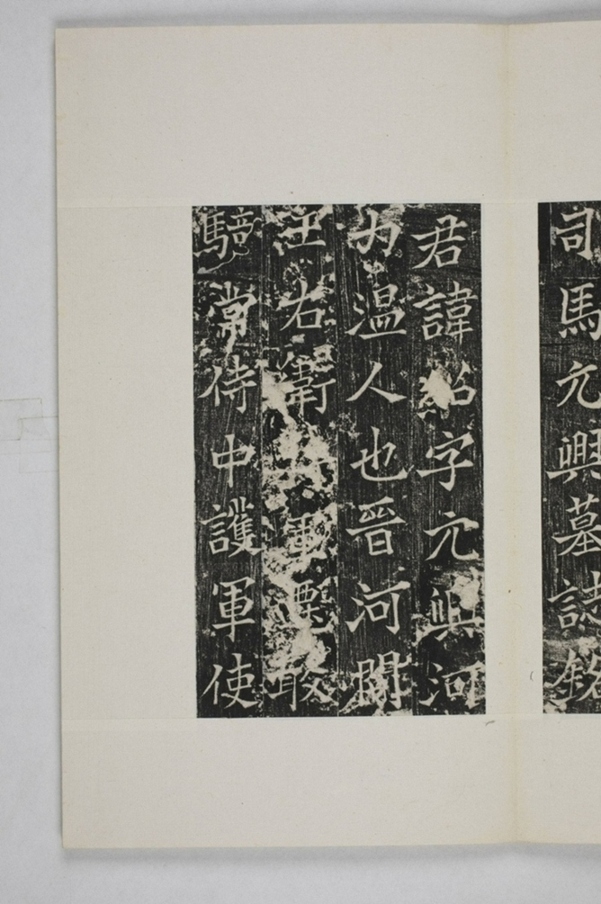 司馬元興墓誌銘
君諱紹字元興河
内温人也晉河間
王右衛將軍遷散
騎常侍中護軍使